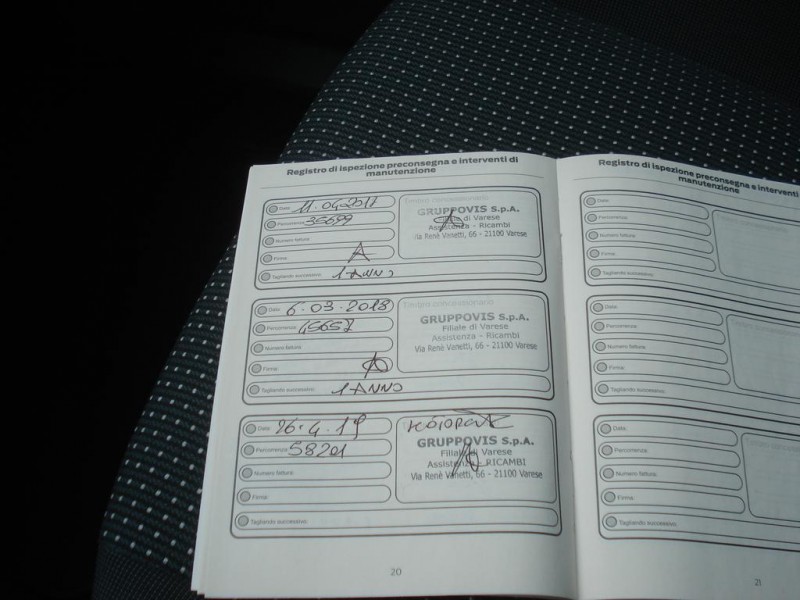 Registro di ispezione preconsegna e interventi di
manutenzione
Data:
Percorrenza: 35699
Numero fattura:
Firma: A
Tagliando successivo: 1 ANNO
GRUPPOVIS S.p.A.
Filiale di Varese
Assistenza - Ricambi
Via Renè Vanetti, 66 - 21100 Varese
Data: 6.03.2018
Percorrenza: 45657
Numero fattura:
Firma:
Tagliando successivo: 1 ANNO
Timbro concessionario
GRUPPOVIS S.p.A.
Filiale di Varese
Assistenza - Ricambi
Via Renè Vanetti, 66 - 21100 Varese
Data: 26.4.19
Percorrenza: 58201
Numero fattura:
Firma:
Tagliando successivo:
GRUPPOVIS S.p.A.
Filiale di Varese
Assistenza - RICAMBI
Via Renè Vanetti, 66 - 21100 Varese
20
Registro di ispezione preconsegna e interventi
manutenzione
Data:
Percorrenza:
Numero fattura:
Firma:
Tagliando successivo:
Data:
Percorrenza:
Numero fattura:
Firma:
Tagliando successivo:
Data:
Percorrenza:
Numero fattura:
Firma:
Tagliando successivo:
21